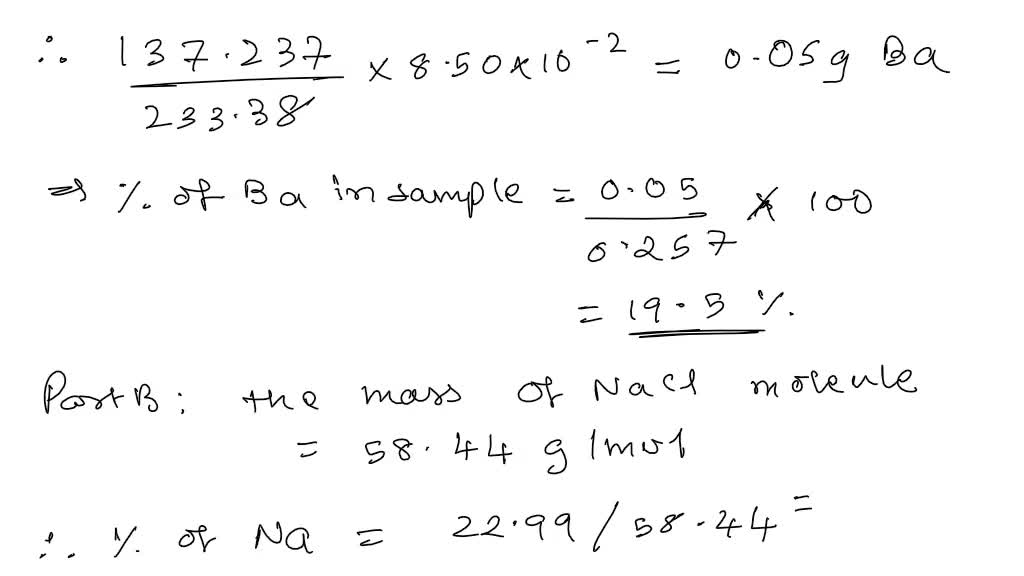 ∴ 137.237 / 233.38 × 8.50×10⁻² = 0.05g Ba
⇒ % of Ba in sample = 0.05 / 0.257 × 100
= 19.5 %.
Part B: the mass of NaCl moleule
= 58.44 g/mol
∴ % of Na = 22.99 / 58.44 =